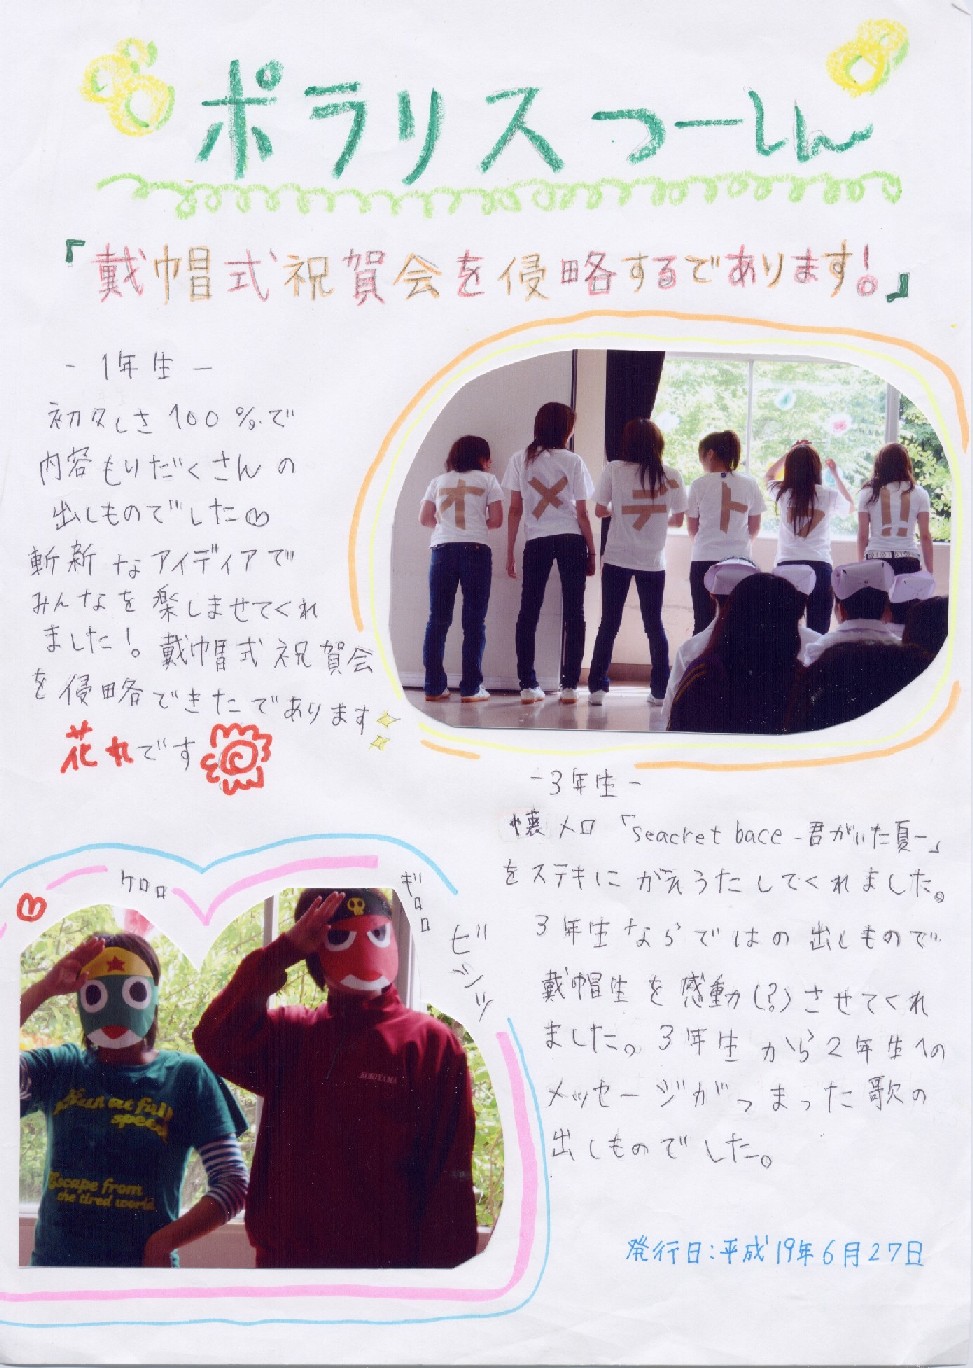 ポラリスつーしん
『戴帽式祝賀会を侵略するであります!。』
- 1年生 -
初々しさ100%で
内容もりだくさんの
出しものでした
斬新なアイディアで
みんなを楽しませてくれ
ました!。戴帽式祝賀会
を侵略できたであります
花丸です
オメデトウ!!
-3年生-
懐メロ「seacret bace -君がいた夏-」
をステキにかえうたしてくれました。
3年生ならではの出しもので
戴帽生を感動(?)させてくれ
ました。3年生から2年生への
メッセージがつまった歌の
出しものでした。
ケロロ
ギロロ
ビシッ
Run at full
speed
Escape from
the tired world
発行日:平成19年6月27日